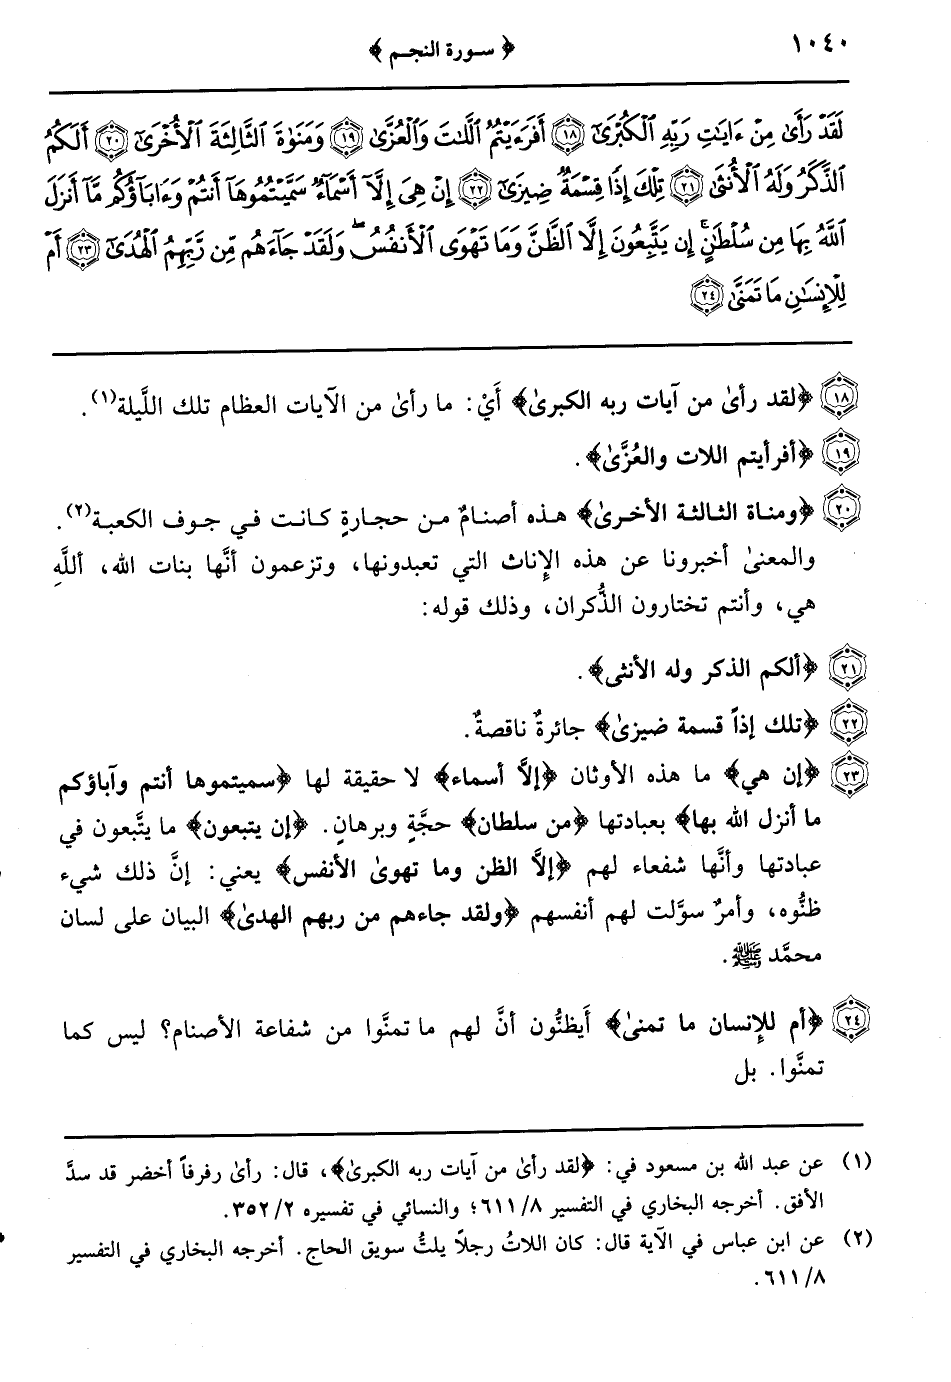 ١٠٤٠
﴿ سورة النجم ﴾
لَقَدْ رَأَىٰ مِنْ ءَايَٰتِ رَبِّهِ ٱلْكُبْرَىٰٓ ١٨ أَفَرَءَيْتُمُ ٱللَّٰتَ وَٱلْعُزَّىٰ ١٩ وَمَنَوٰةَ ٱلثَّالِثَةَ ٱلْأُخْرَىٰٓ ٢٠ أَلَكُمُ
ٱلذَّكَرُ وَلَهُ ٱلْأُنثَىٰ ٢١ تِلْكَ إِذًا قِسْمَةٌ ضِيزَىٰٓ ٢٢ إِنْ هِىَ إِلَّآ أَسْمَآءٌ سَمَّيْتُمُوهَآ أَنتُمْ وَءَابَآؤُكُم مَّآ أَنزَلَ
ٱللَّهُ بِهَا مِن سُلْطَٰنٍ ۚ إِن يَتَّبِعُونَ إِلَّا ٱلظَّنَّ وَمَا تَهْوَى ٱلْأَنفُسُ ۖ وَلَقَدْ جَآءَهُم مِّن رَّبِّهِمُ ٱلْهُدَىٰٓ ٢٣ أَمْ
لِلْإِنسَٰنِ مَا تَمَنَّىٰ ٢٤
١٨ ﴿لقد رأىٰ من آيات ربه الكبرىٰ﴾ أَيْ: ما رأىٰ من الآيات العظام تلك اللَّيلة(١).
١٩ ﴿أفرأيتم اللات والعُزَّىٰ﴾.
٢٠ ﴿ومناة الثالثة الأخرىٰ﴾ هذه أصنامٌ من حجارةٍ كانت في جوف الكعبة(٢).
والمعنىٰ أخبرونا عن هذه الإِناث التي تعبدونها، وتزعمون أنَّها بنات الله، أللَّهِ
هي، وأنتم تختارون الذُّكران، وذلك قوله:
٢١ ﴿ألكم الذكر وله الأنثى﴾.
٢٢ ﴿تلك إذاً قسمة ضيزىٰ﴾ جائرةٌ ناقصةٌ.
٢٣ ﴿إن هي﴾ ما هذه الأوثان ﴿إلَّا أسماء﴾ لا حقيقة لها ﴿سميتموها أنتم وآباؤكم
ما أنزل الله بها﴾ بعبادتها ﴿من سلطان﴾ حجَّةٍ وبرهانٍ. ﴿إن يتبعون﴾ ما يتَّبعون في
عبادتها وأنَّها شفعاء لهم ﴿إلَّا الظن وما تهوىٰ الأنفس﴾ يعني: إنَّ ذلك شيء
ظنُّوه، وأمرٌ سوَّلت لهم أنفسهم ﴿ولقد جاءهم من ربهم الهدىٰ﴾ البيان على لسان
محمَّد ﷺ.
٢٤ ﴿أم للإنسان ما تمنىٰ﴾ أَيظنُّون أنَّ لهم ما تمنَّوا من شفاعة الأصنام؟ ليس كما
تمنَّوا. بل
(١) عن عبد الله بن مسعود في: ﴿لقد رأىٰ من آيات ربه الكبرىٰ﴾، قال: رأىٰ رفرفاً أخضر قد سدَّ
الأفق. أخرجه البخاري في التفسير ٦١١/٨؛ والنسائي في تفسيره ٣٥٢/٢.
(٢) عن ابن عباس في الآية قال: كان اللاتُ رجلاً يلتُّ سويق الحاج. أخرجه البخاري في التفسير
٦١١/٨.